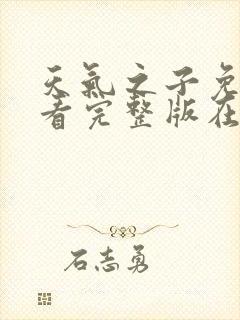 天氣之子免
看完整版在
石志勇